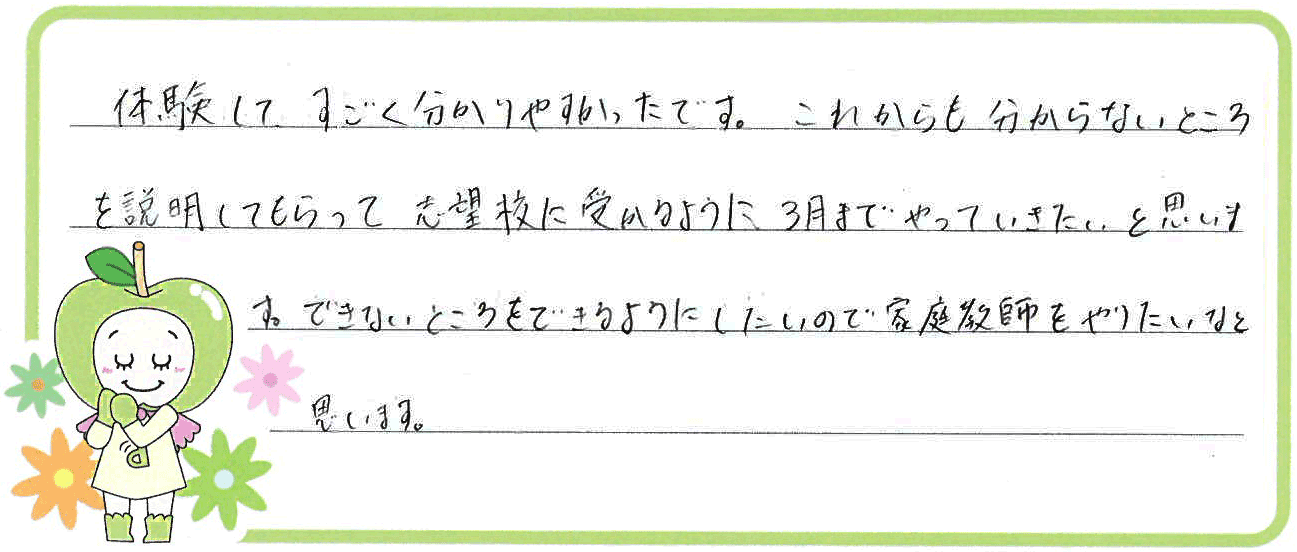 体験して すごく分かりやすかったです。これからも 分からないところ
を説明してもらって 志望校に受かるように 3月まで やっていきたい と思いま
す。できないところをできるようにしたいので 家庭教師を やりたいなと
思います。